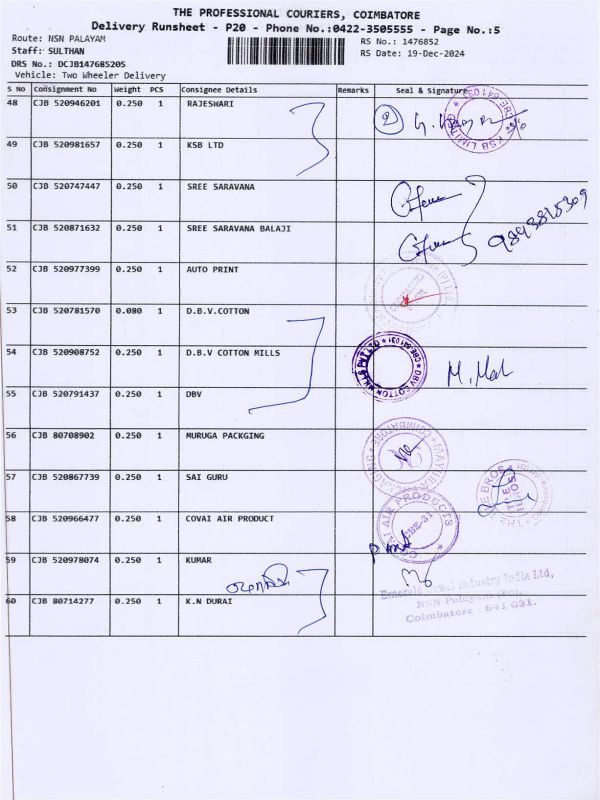 THE PROFESSIONAL COURIERS, COIMBATORE
Delivery Runsheet - P20 - Phone No.:0422-3505555 - Page No.:5
Route: NSN PALAYAM
RS No.: 1476852
Staff: SULTHAN
RS Date: 19-Dec-2024
DRS No.: DCJB1476852O5
Vehicle: Two Wheeler Delivery
S No Consignment No Weight PCS Consignee Details Remarks Seal & Signature
48 CJB 520946201 0.250 1 RAJESWARI
2
KSB LIMITED
49 CJB 520981657 0.250 1 KSB LTD
50 CJB 520747447 0.250 1 SREE SARAVANA
51 CJB 520871632 0.250 1 SREE SARAVANA BALAJI
52 CJB 520977399 0.250 1 AUTO PRINT
53 CJB 520781570 0.080 1 D.B.V.COTTON
54 CJB 520908752 0.250 1 D.B.V COTTON MILLS
DBV COTTON MILLS PVT LTD * CBE-641 031 *
55 CJB 520791437 0.250 1 DBV
56 CJB 80708902 0.250 1 MURUGA PACKGING
57 CJB 520867739 0.250 1 SAI GURU
58 CJB 520966477 0.250 1 COVAI AIR PRODUCT
COVAI AIR PRODUCTS
CBE-31
59 CJB 520978074 0.250 1 KUMAR
60 CJB 80714277 0.250 1 K.N DURAI
Industry India Ltd,
NSN Palayam (Po),
Coimbatore - 641 031.